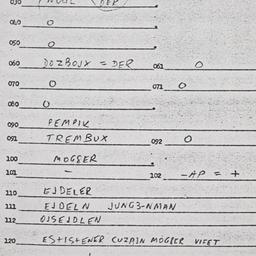 040 O
050 O
060 DOZBOJX = DER 061 O
070 O 071 O
080 O
090 PEMPIK
091 TREMBUX 092 O
100 MOGSER
101 - 102 -AP = +
110 EJDELER
111 EJDELN JUNG3-NMAN
112 OJSEJDLEN
120 MOGSER VIFET